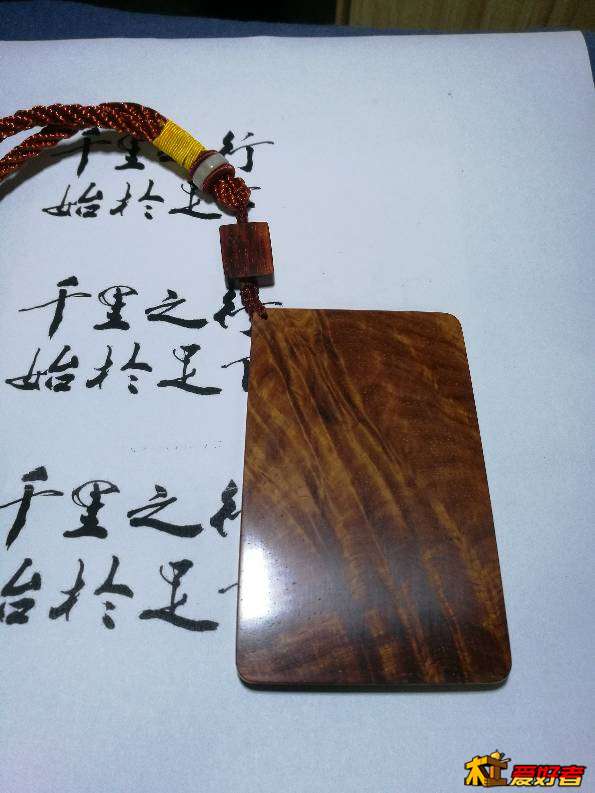 千里之行
始於足
千里之行
始於足
千里之行
始於足
木工爱好者